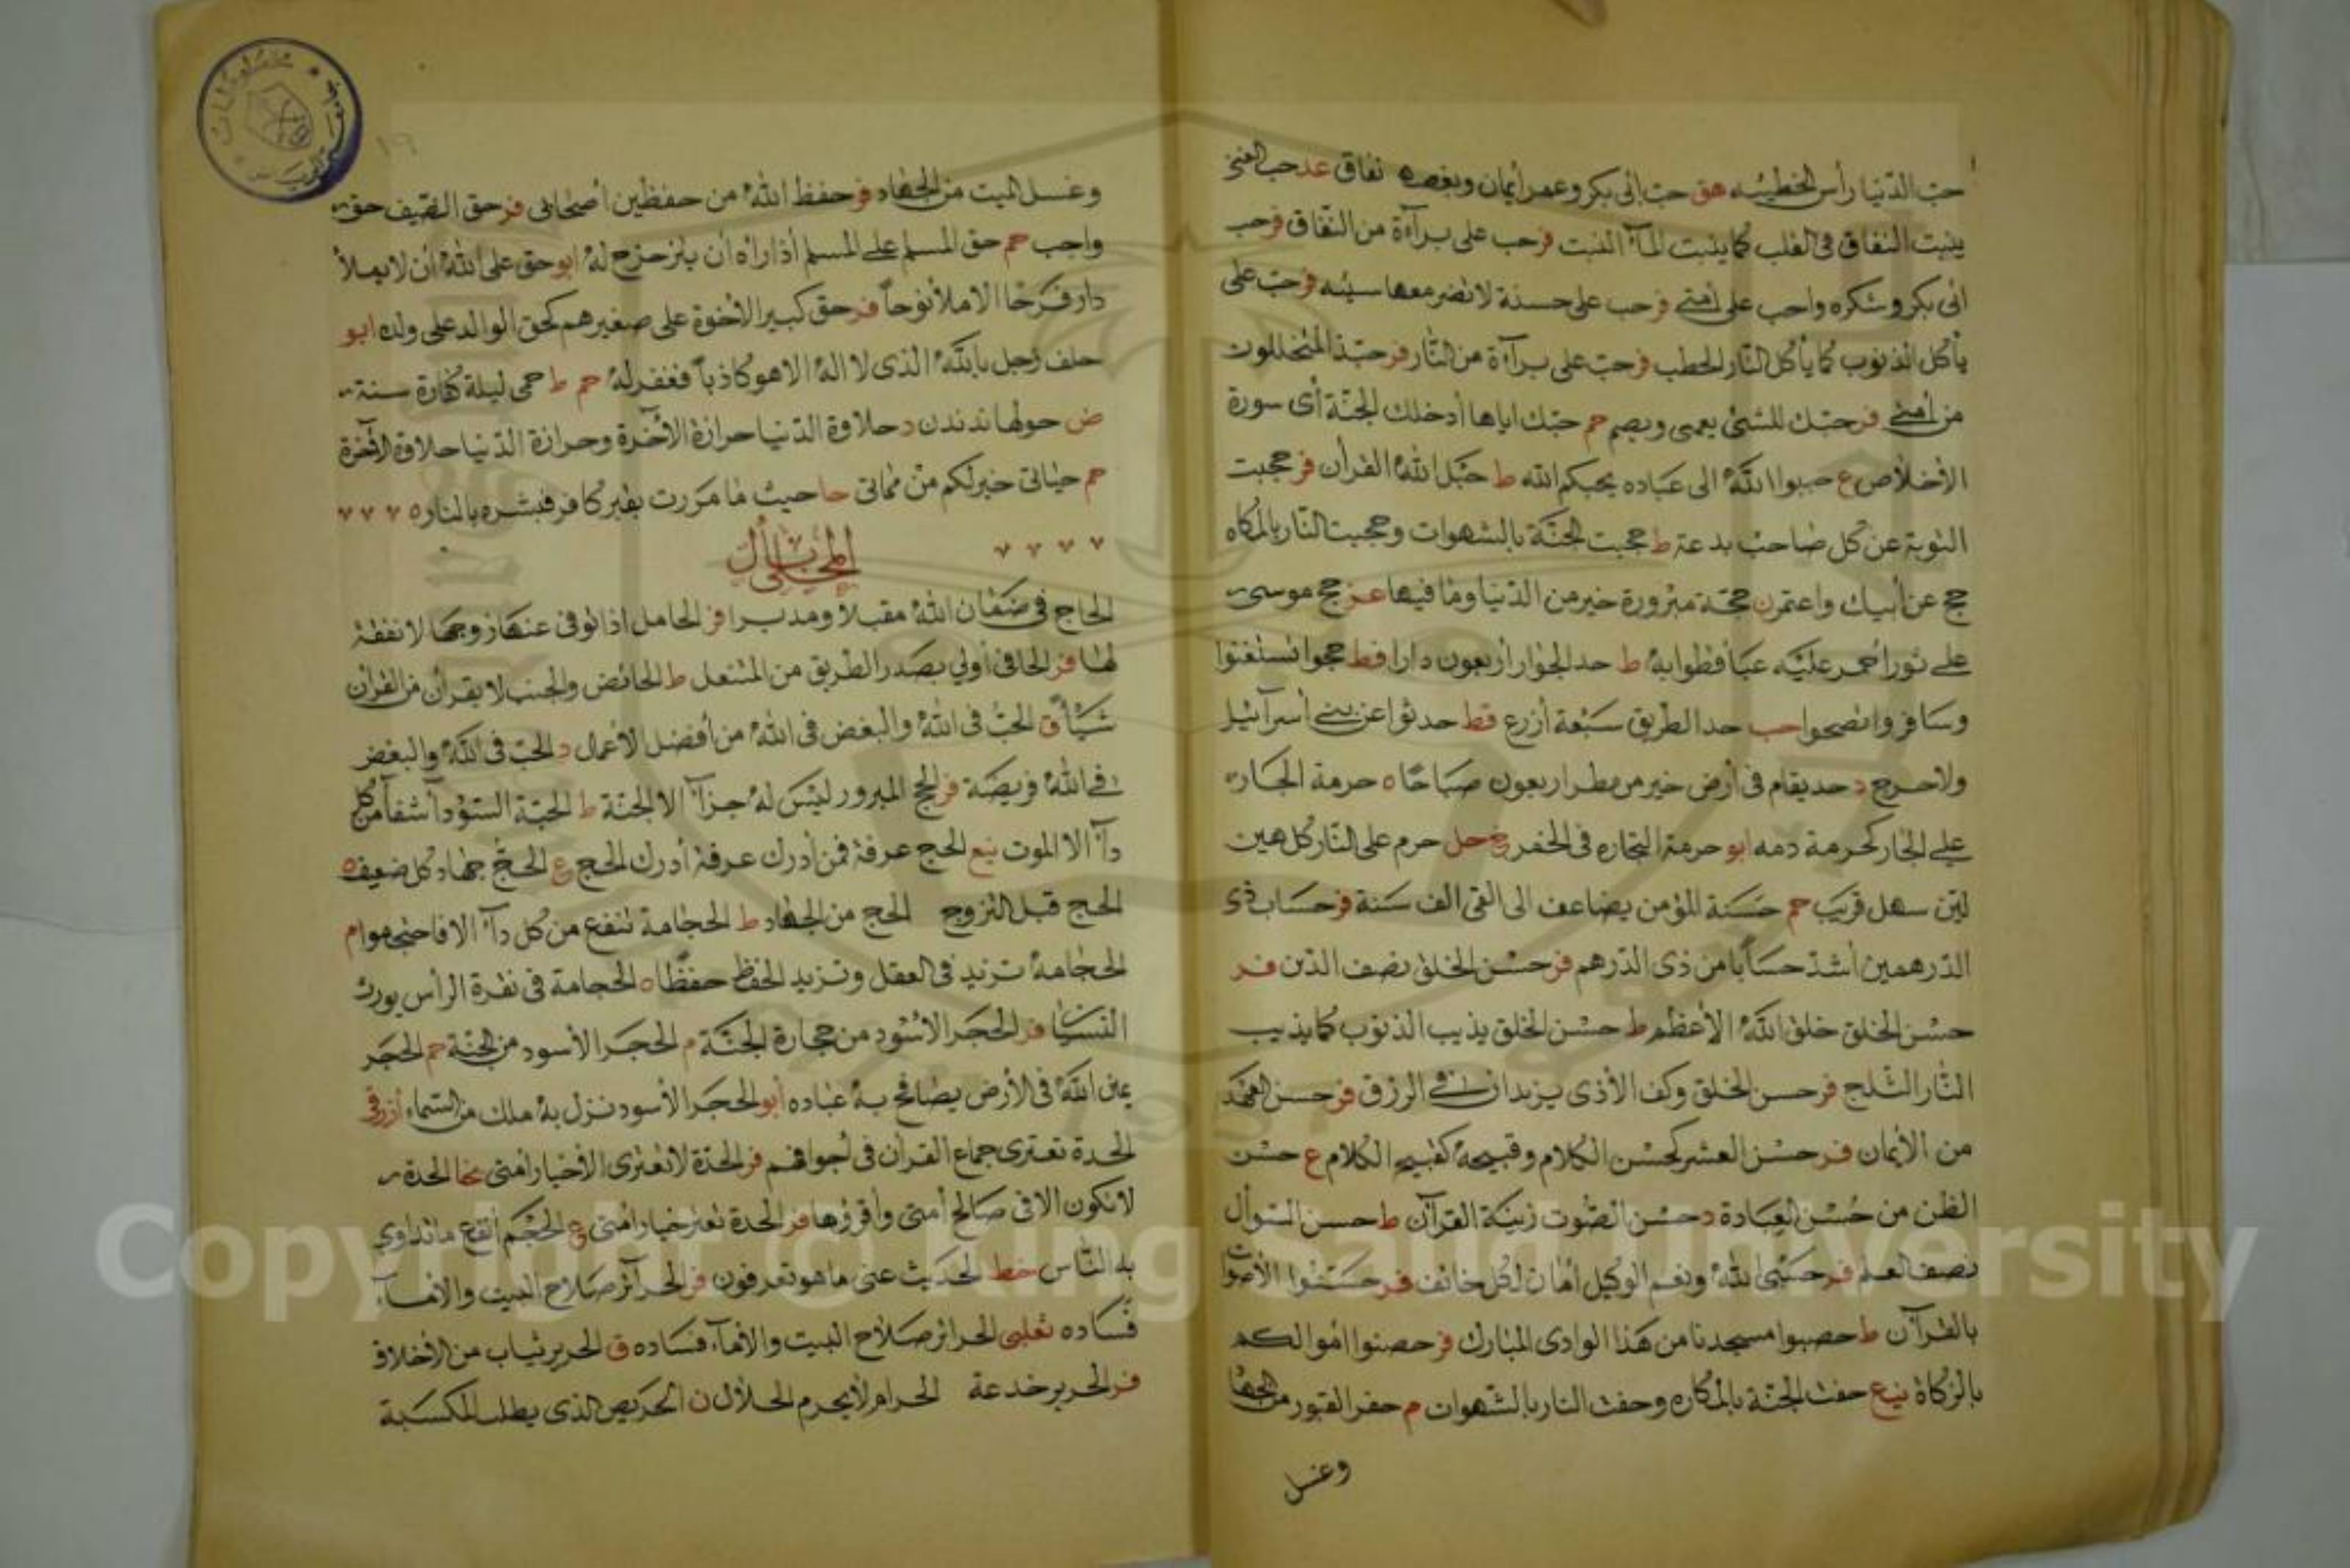 حبّ الدّنيا رأس الخطيئه هق حب ابى بكر وعمر أيمان وبغضه نفاق عد حب الغنى
ينبت النفاق فى القلب كما ينبت المآء النبت فر حب على برآءة من النّفاق فر حب
ابى بكر وشكره واجب على أمتى فر حب على حسنة لا تضر معها سيئه فر حبّ على
يأكل الذنوب كما يأكل النّار الحطب فر حبّ على برآءة من النّار فر حبّذا المتخللون
من أمتى فر حبّك للشئ يعمى ويصم حم حبّك اياها أدخلك الجنّة أى سورة
الأخلاص ع حببوا اللّه الى عباده يحبكم الله ط حبل اللّه القرأن فر حجبت
التوبة عن كل صاحب بدعة ط حجبت الجنّة بالشهوات وحجبت النّار بالمكاه
حج عن أبيك واعتمر ن حجّة مبرورة خير من الدّنيا وما فيها عز حج موسى
على ثور احمر عليه عبا قطوانية ط حد الجوار أربعون دارا قط حجوا تستغنوا
وسافروا تصحوا حب حد الطريق سبعة أزرع قط حدثوا عن بنى أسرآئيل
ولا حرج د حد يقام فى أرض خير من مطر اربعون صباحًا ه حرمة الجار
على الجار كحرمة دمه ابو حرمة التجاره فى الخمر خ حل حرم على النّار كل هين
لين سهل قريب حم حسنة المؤمن يضاعف الى القى الف سنة فر حساب ذى
الدّرهمين أشدّ حسابا من ذى الدّرهم فر حسن الخلق نصف الدّين فر
حسن الخلق خلق اللّه الأعظم ط حسن الخلق يذيب الذنوب كما يذيب
النّار الثلج فر حسن الخلق وكف الأذى يزيدان فى الرزق فر حسن العهد
من الأيمان فر حسن الشعر كحسن الكلام وقبيحه كقبيح الكلام ع حسن
الظن من حسن العبادة د حسن الصّوت زينة القرآن ط حسن السّوأل
نصف العلم فر حسبى اللّه ونعم الوكيل امان لكل خائف فر حسّنوا الأصوات
بالقرآن ط حصبوا مسجدنا من هذا الوادى المبارك فر حصنوا اموالكم
بالزكاة نيع حفت الجنّة بالمكاره وحفت النار بالشّهوات م حفر القبور من الجهاد
وغسل
وغسل الميت من الجهاد فر حفظ اللّه من حفظين أصحابى فر حق الضّيف حق
واجب حم حق المسلم على المسلم أذا رأه أن يتزحزح له ابو حق على اللّه أن لا يملأ
دار فرحا الا ملأ نوحاً فر حق كبير الأخوة على صغيرهم كحق الوالد على ولده ابو
حلف رجل باللّه الذى لا اله الا هو كاذباً فغفر له حم ط حمى ليلة كفارة سنة
ض حولها ندندن د حلاوة الدّنيا حرازة الأخرة وحرازة الدّنيا حلاوة الأخرة
حم حياتى خير لكم من مماتى حا حيث ما مررت بقبر كافر فبشره بالنار ه
المحلى بأل
الحاج فى ضمان اللّه مقبلا ومدبرا فر الحامل اذا توفى عنها زوجها لا نفقة
لها فر الحافى أولى بصدر الطريق من المنتعل ط الحائض والجنب لا يقرأن من القرأن
شيأ ق الحبّ فى اللّه والبغض فى اللّه من أفضل الأعمال د الحبّ فى اللّه والبغض
فى اللّه فريضة فر الحج المبرور ليس له جزآء الا الجنّة ط الحبّة السّودآء شفآء من كل
دآء الا الموت نيع الحج عرفة فمن أدرك عرفة أدرك الحج ع الحجّ جهاد كل ضعيف ه
الحج قبل التزوج الحج من الجهاد ط الحجامة تنفع من كل دآء الا فاحتجموا م
الحجامة تزيد فى العقل وتزيد الحفظ حفظًا ه الحجامة فى نقرة الرأس يورث
النسيان فر الحجر الأسود من حجارة الجنّة م الحجر الأسود من الجنّة حم الحجر
يمين اللّه فى الأرض يصافح به عباده أبو الحجر الأسود نزل به ملك من السّماء أزرقى
الحدة تعترى جماع القرأن فى أجوافهم فر الحدّة لا تعترى الأخيار أمتى نحا الحدة
لا تكون الا فى صالح أمتى وأقرؤها فر الحدة تعتر خيار امتى ع الحجم أنفع ما تداوى
به النّاس خط الحديث عنى ما هو تعرفون فر الحرآئر صلاح البيت والأمآء
فساده ثعلبى الحرائر صلاح البيت والأمآء فساده ق الحرير ثياب من لا خلاق
فر الحرب خدعة الحرام لا يحرم الحلال ن الحريص الذى يطلب المكسبة